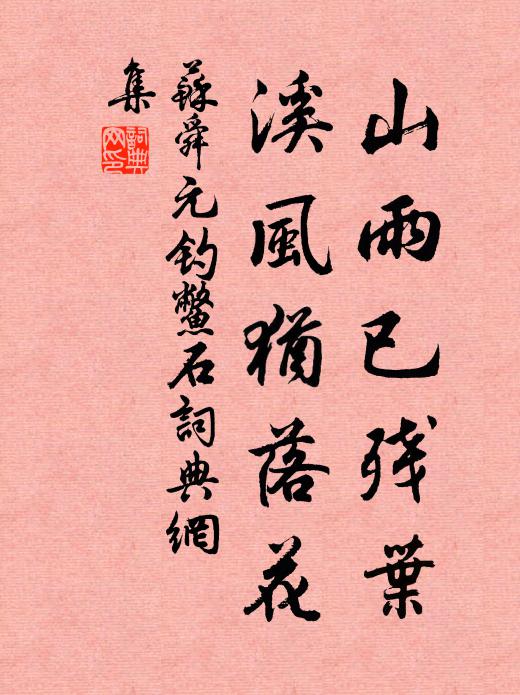 山雨已残葉
溪風猶落花
蘇舜元钓鱉石詞典網
集
詞典網印